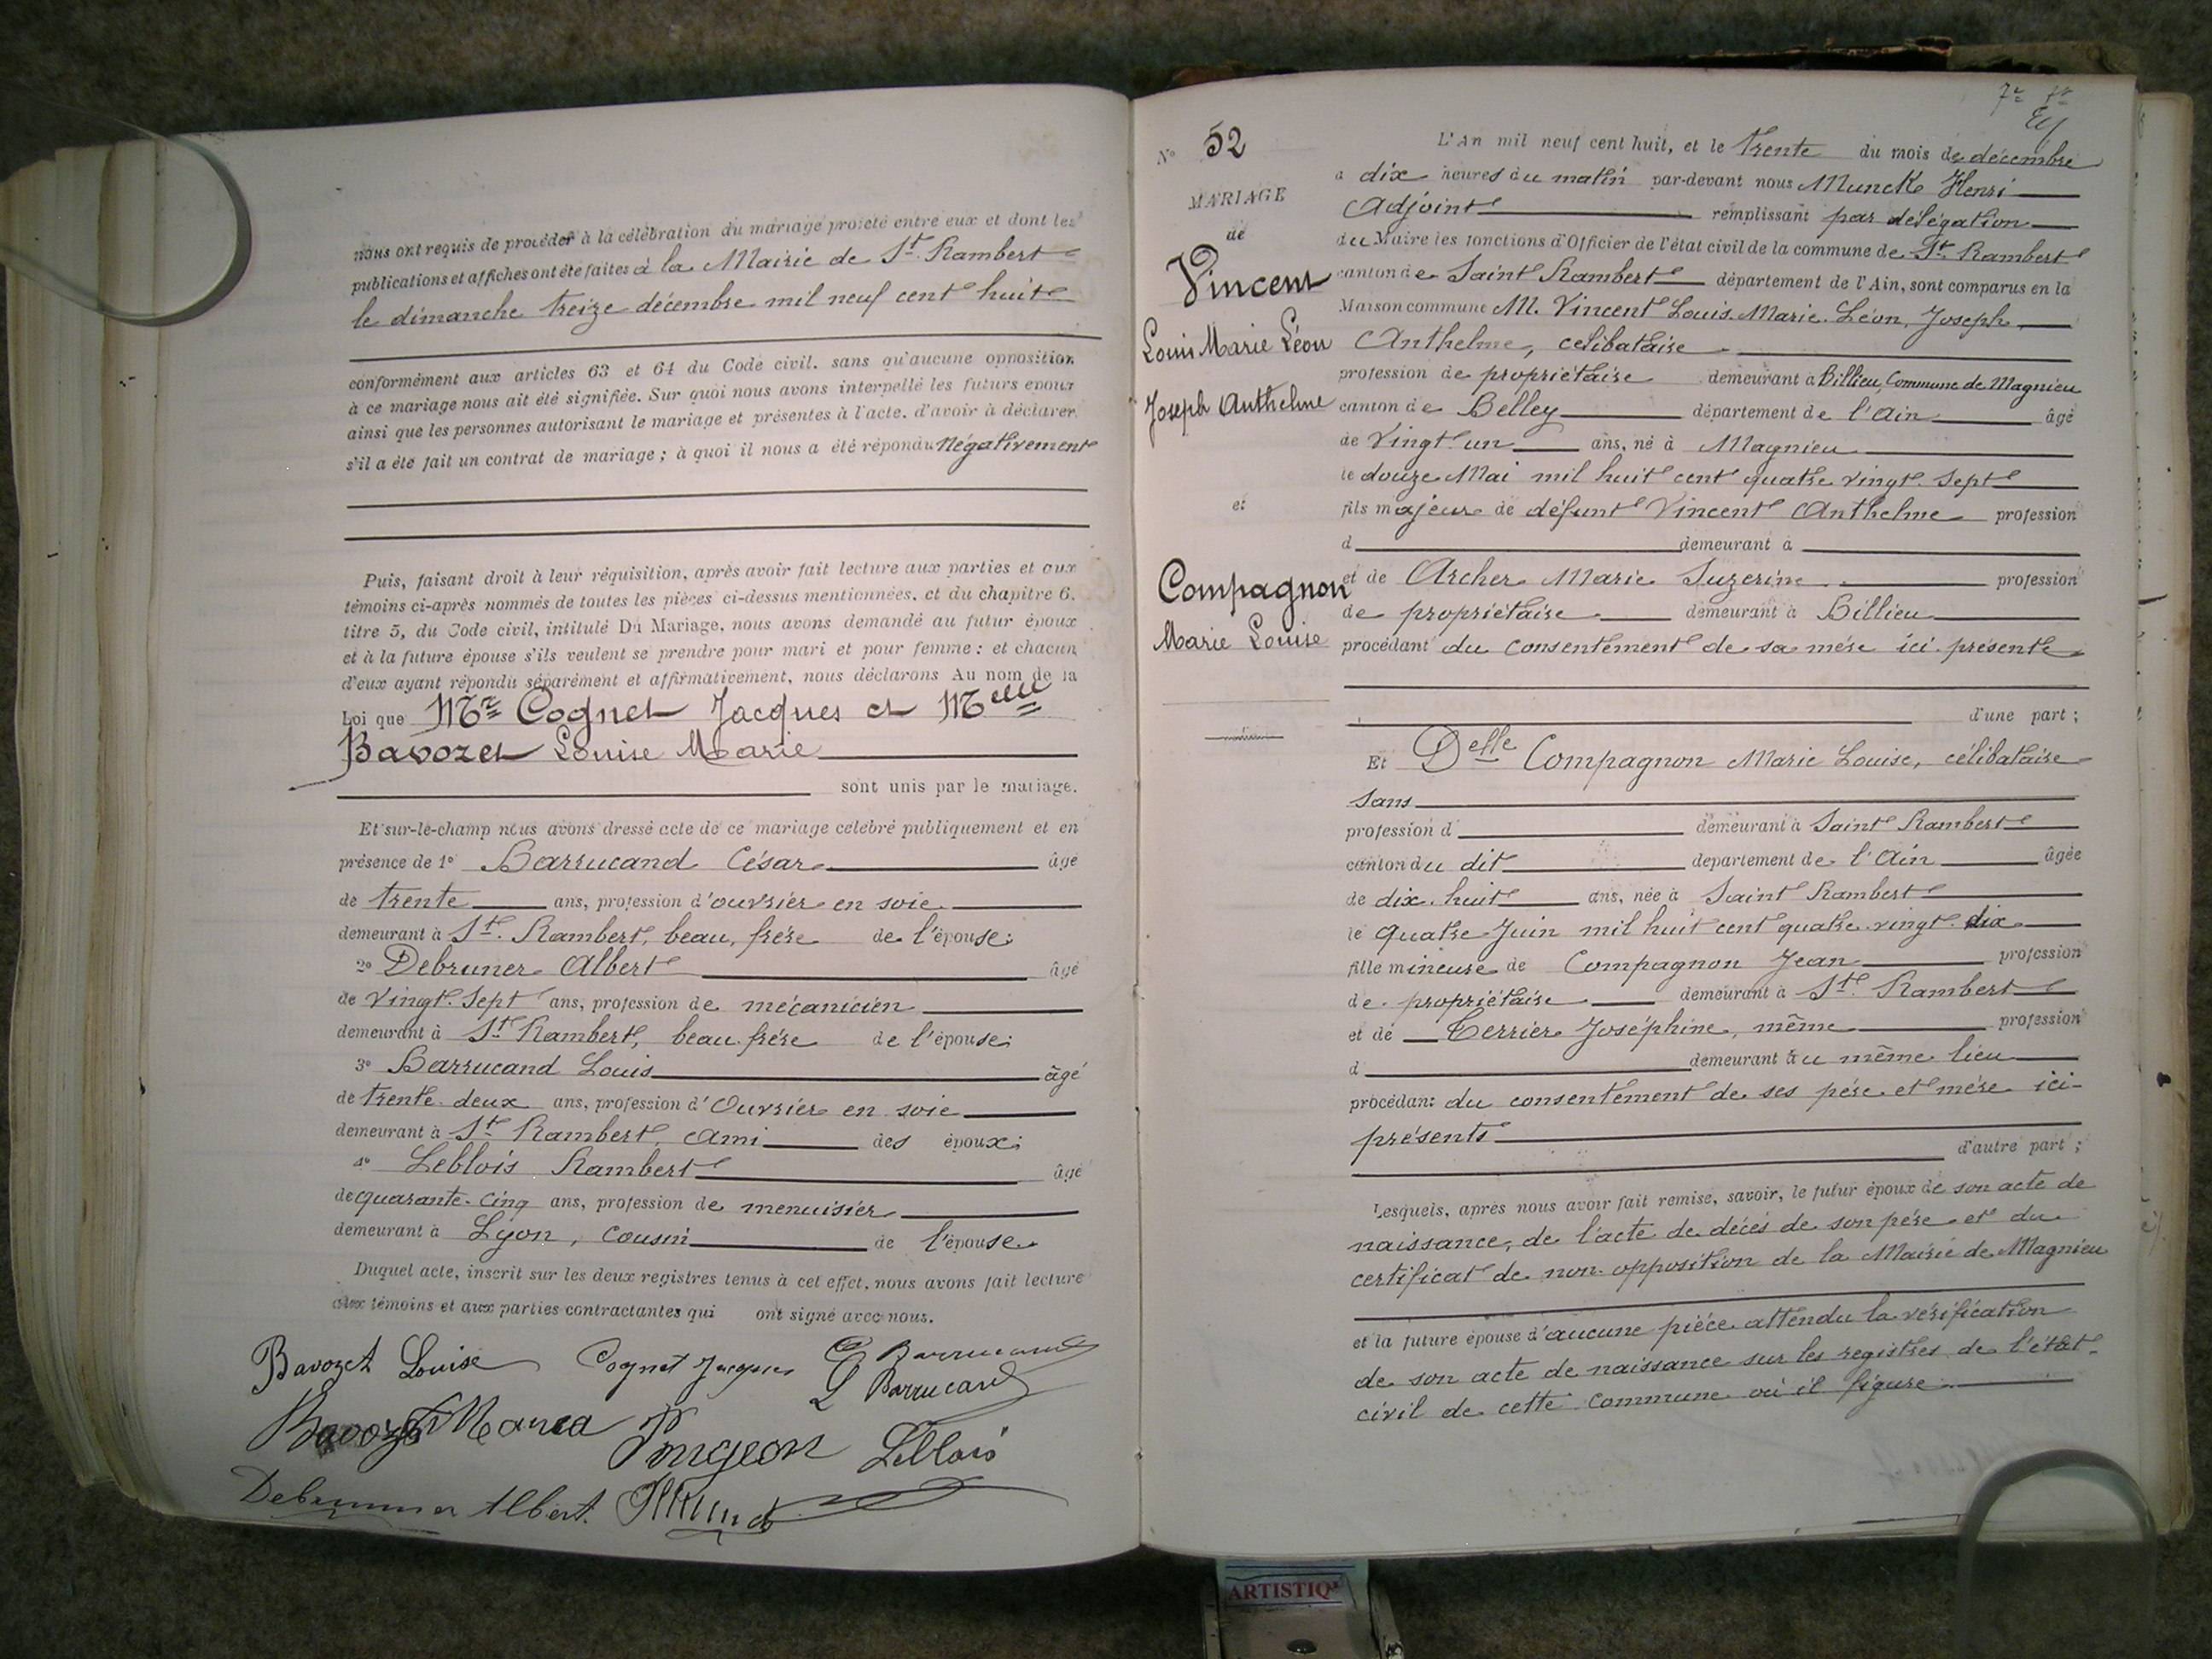 nous ont requis de procéder à la célébration du mariage projeté entre eux et dont les
publications et affiches ont été faites à la Mairie de St. Rambert
le dimanche treize décembre mil neuf cent huit
conformément aux articles 63 et 64 du Code civil. sans qu'aucune opposition
à ce mariage nous ait été signifiée. Sur quoi nous avons interpellé les futurs epoux
ainsi que les personnes autorisant le mariage et présentes à l'acte. d'avoir à déclarer
s'il a été fait un contrat de mariage ; à quoi il nous a été répondu Négativement
Puis, faisant droit à leur réquisition, après avoir fait lecture aux parties et aux
témoins ci-après nommés de toutes les pièces ci-dessus mentionnées. et du chapitre 6.
titre 5, du Code civil, intitulé Du Mariage, nous avons demandé au futur époux
et à la future épouse s'ils veulent se prendre pour mari et pour femme : et chacun
d'eux ayant répondu séparément et affirmativement, nous déclarons Au nom de la
Loi que Mr Cognet Jacques et Melle
Bavozet Louise Marie
sont unis par le mariage.
Et sur-le-champ nous avons dressé acte de ce mariage celébré publiquement et en
présence de 1° Barrucand César âgé
de trente ans, profession d'ouvrier en soie
demeurant à St. Rambert, beau, frère de l'épouse;
2° Debruner Albert âgé
de vingt. sept ans, profession de mécanicien
demeurant à St Rambert, beau. frère de l'épouse;
3° Barrucand Louis âgé
de trente. deux ans, profession d'Ouvrier en soie
demeurant à St Rambert, ami des époux;
4° Leblois Rambert âgé
de quarante. cinq ans, profession de menuisier
demeurant à Lyon, cousin de l'épouse
Duquel acte, inscrit sur les deux registres tenus à cet effet. nous avons fait lecture
aux témoins et aux parties contractantes qui ont signé avec nous.
Bavozet Louise Cognet Jacques C Barrucand
L Barrucand
Bavozet Leblois
Debrunner Albert.
N° 52
MARIAGE
de
Vincent
Louis Marie Léon
Joseph Anthelme
et
Compagnon
Marie Louise
L'An mil neuf cent huit, et le trente du mois de décembre
a dix heures du matin par-devant nous Munck Henri
Adjoint remplissant par délégation
du Maire les fonctions d'Officier de l'état civil de la commune de St. Rambert
canton de Saint Rambert département de l'Ain, sont comparus en la
Maison commune M. Vincent Louis. Marie. Léon, Joseph,
Anthelme, celibataire
profession de propriétaire demeurant à Billieu, Commune de Magnieu
canton de Belley département de l'Ain âgé
de vingt un ans, né à Magnieu
le douze Mai mil huit cent quatre vingt. sept
fils majeur de défunt Vincent Anthelme profession
d demeurant à
et de Archer Marie Suzerine profession
de propriétaire demeurant à Billieu
procédant du consentement de sa mére ici présente
d'une part ;
Et Delle Compagnon Marie Louise, célibataire
sans
profession d demeurant à Saint Rambert
canton du dit departement de l'Ain âgée
de dix. huit ans, née à Saint Rambert
le quatre Juin mil huit cent quatre. vingt. dix
fille mineure de Compagnon Jean profession
de propriétaire demeurant à St. Rambert
et de Terrier Joséphine, même profession
d demeurant au même lieu
procédant du consentement de ses pére et mére ici-
présents
d'autre part ;
Lesquels, après nous avoir fait remise, savoir, le futur époux de son acte de
naissance, de l'acte de décés de son pére et du
certificat de non. opposition de la Mairie de Magnieu
et la future épouse d'aucune piéce attendu la vérification
de son acte de naissance sur les registres de l'état-
civil de cette commune où il figure.
ARTISTIQ